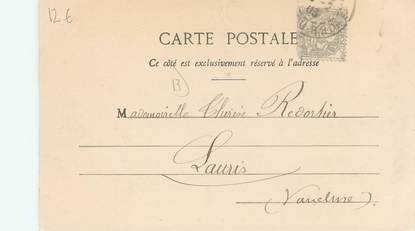 12 €
CARTE POSTALE
Ce côté est exclusivement réservé à l'adresse
B
Mademoiselle Thérèse Redortier
Lauris
(Vaucluse).